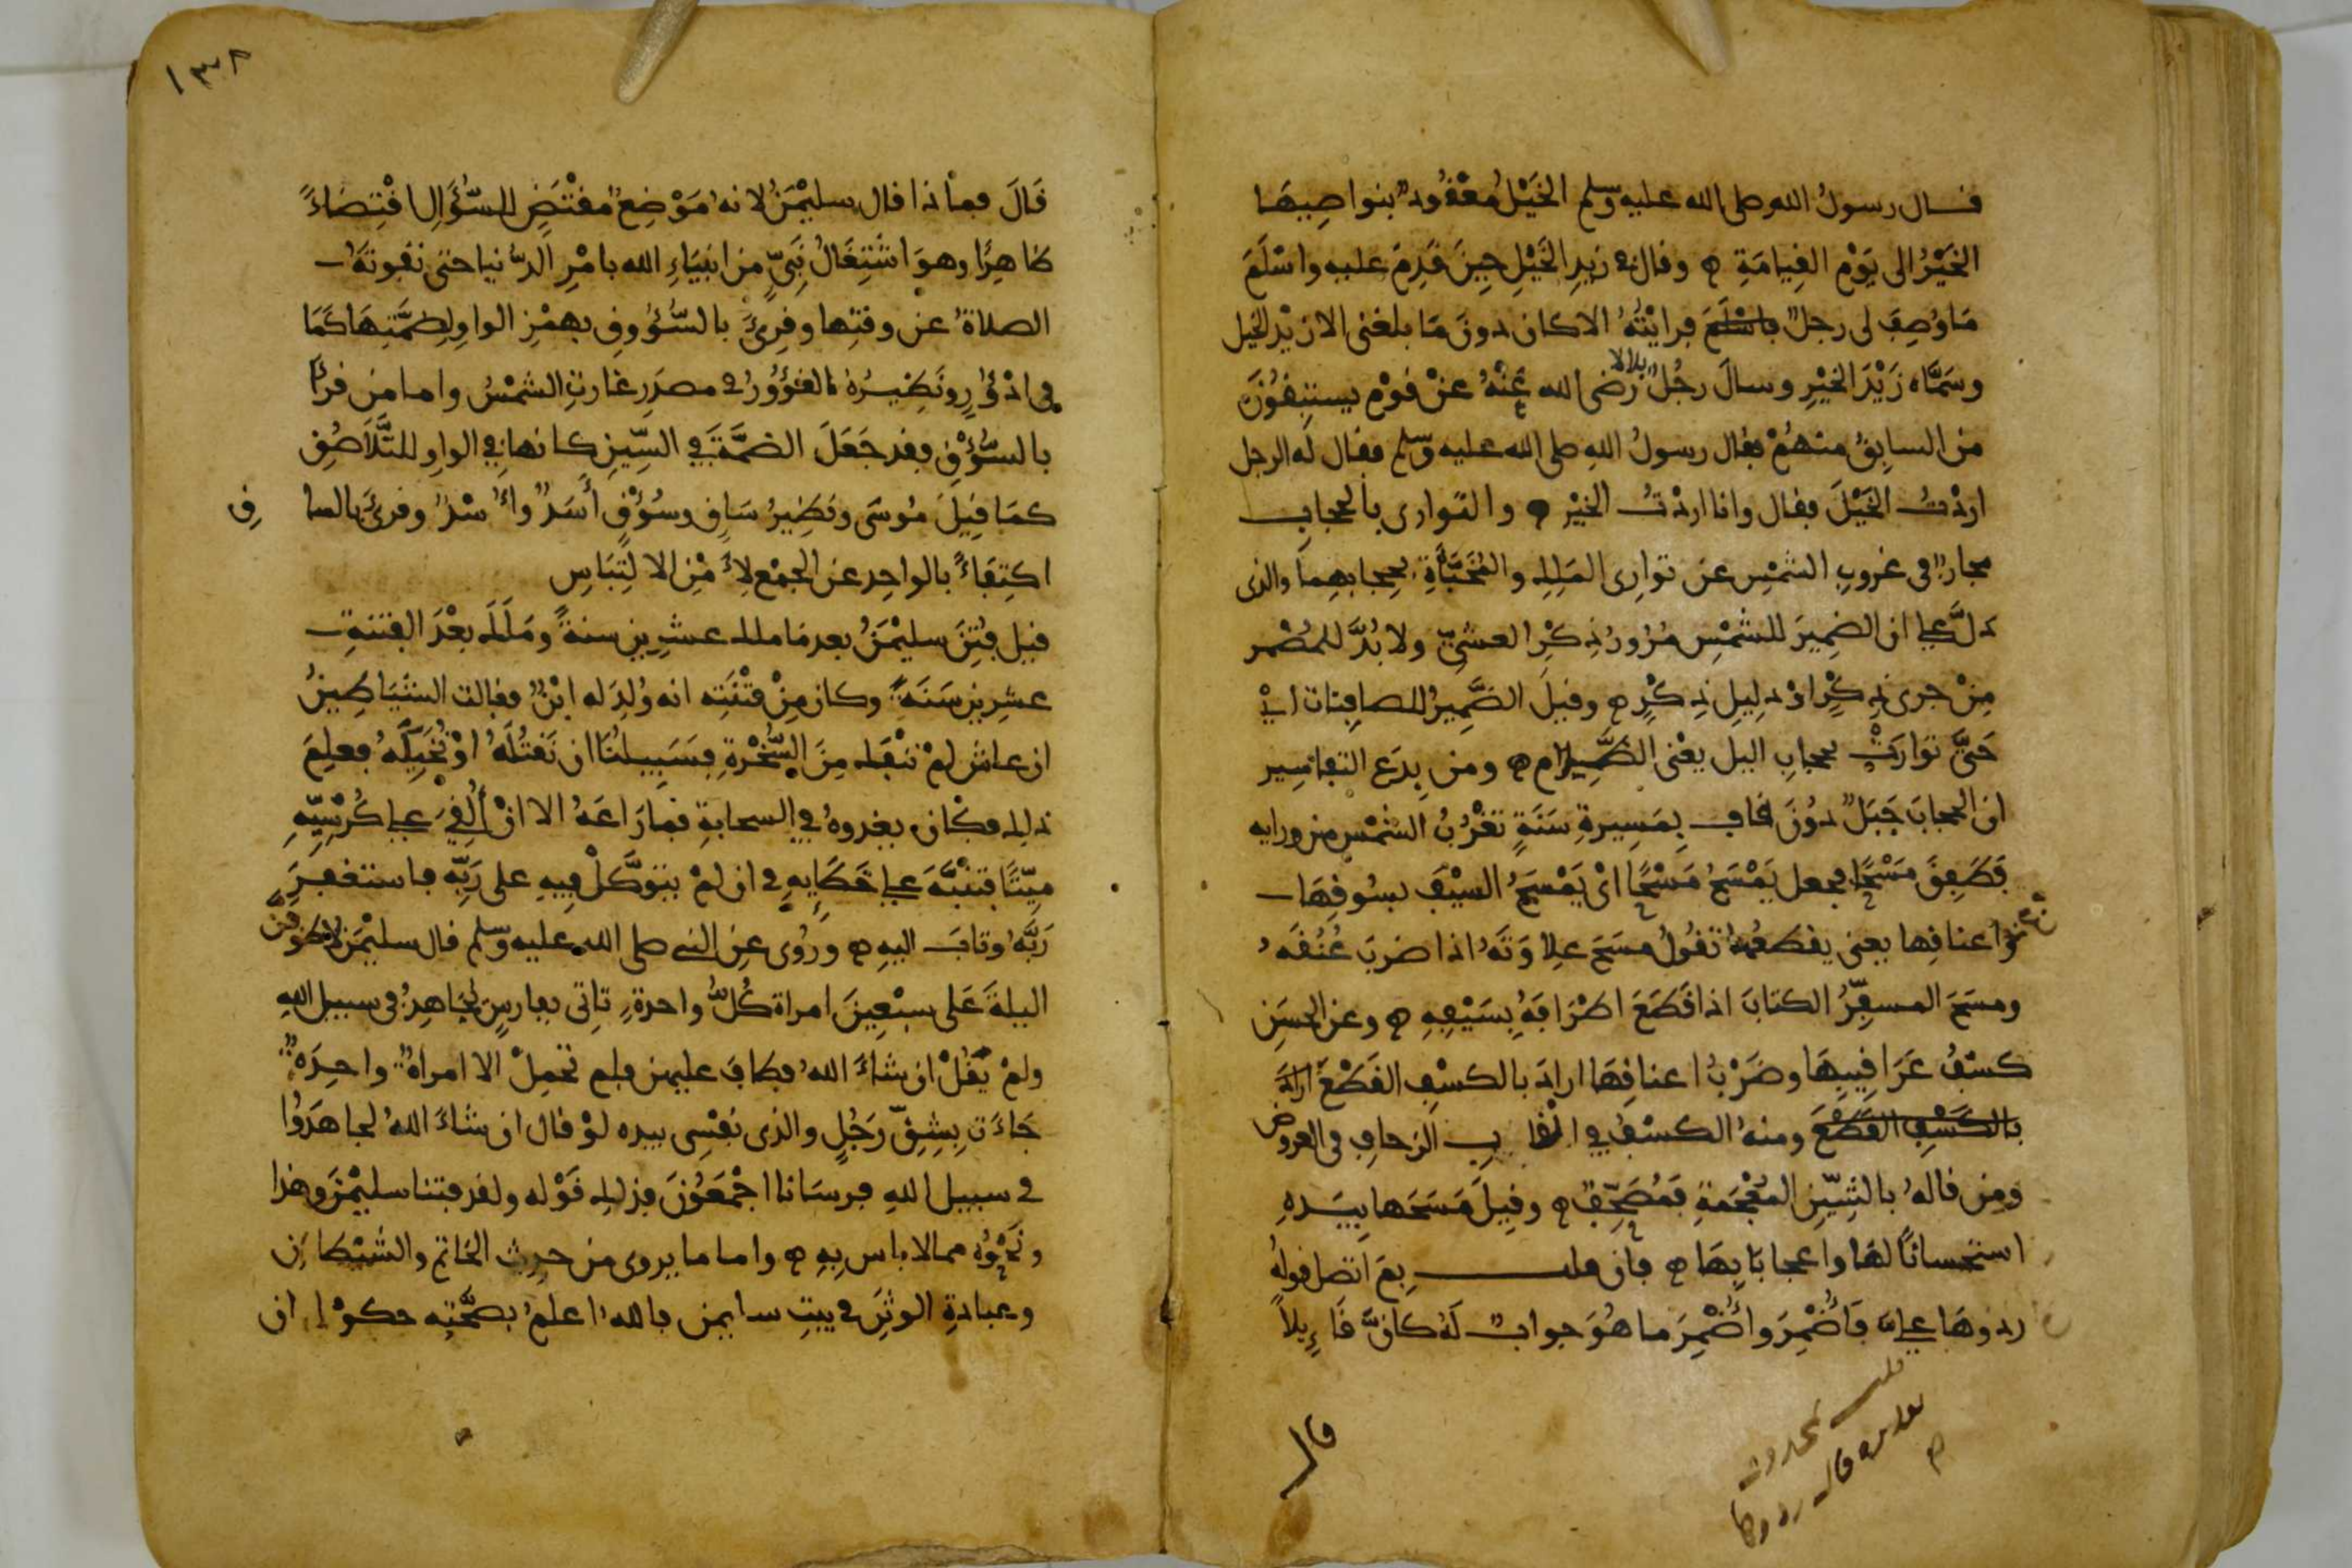 قال رسولُ الله صلى الله عليه وسلم الخَيْلُ مَعْقُودٌ بنواصِيهَا
الخَيْرُ الى يَوْمِ القِيامَةِ ه وقال في زيدِ الخَيْلِ حِينَ قَدِمَ عليه واسْلَمَ
مَا وُصِفَ لى رجلٌ فرايْتُهُ الا كان دونَ مَا بلغنى الا زيْد الخيل
وسَمَّاه زَيْدَ الخيْرِ وسالَ رجُلٌ بلالا رضى الله عنْهُ عنْ قوْمٍ يستبِقُونَ
من السابِقُ منهُمْ فقال رسولُ اللهِ صلى الله عليه وسلم فقال لَه الرجل
اردْتُ الخَيْلَ فقال وانا اردْتُ الخيْر ه والتوارى بالحجابِ
مجازٌ فى غروبِ الشمْسِ عن توارِى المَلِكِ والمُخَبَّأَةِ بحجابهِما والذى
دَلَّ على ان الضمِيرَ للشمْسِ مُرُورُ ذِكْرِ العشىِّ ولا بُدَّ للمُضْمر
مِنْ جرى ذِكْرٍ اوْ دلِيلِ ذِكْرٍ ه وقيلَ الضَّمِيرُ للصافِنات اىْ
حَتَّى توارَتْ بحجابِ اليل يعْنى الظَّلام ه ومن بِدَع التفاسِير
ان الحجابَ جَبَلٌ دُونَ قاف بِمَسِيرةِ سَنَةٍ تغْرُبُ الشمْس من ورايه
فَطَفِقَ مَسْحًا فجعل يَمْسَحُ مَسْحًا اىْ يَمْسَحُ السيْفَ بسُوقِهَا
واعناقِها يعنى يقطعُها تقُولُ مسَحَ عِلَاوَتَهُ اذا ضربَ عُنُقَهُ
ومسَحَ المسفِّرُ الكتابَ اذا قَطَعَ اطْرَافَهُ بِسَيْفِهِ ه وعن الحسَنِ
كسْفُ عَرَاقِيبِهَا وضَرْبُ اعناقِهَا ارادَ بالكسْفِ القَطْعَ ارادَ
بالكَسْفِ القَطْعَ ومنهُ الكسْفُ في القاب الزحافِ فى العروض
ومِن قالهُ بالشِّينِ المُعْجَمةِ فمُصَحِّفٌ ه وقِيلَ مَسَحَها بِيَدِهِ
استحسانًا لهَا واعجابًا بِهَا ه فان قلت بِمَ اتصل قولُهُ
ردوهَا علىّ فأُضْمِرَ وأُضْمِرَ ما هُوَ جوابٌ لَهُ كانَّ قَاِيلاً
قال
١٣٨
قَالَ فماْذا قال سليْمَنُ لانهُ مَوْضِعٌ مُقْتَضٍ للسُّؤَالِ اقْتِضاءً
ظاهِرًا وهوَ اشْتِغَالُ نَبِىٍّ من انبيَاءِ الله بامْرِ الدُّنيا حتى تفوتَهُ
الصلاةُ عنْ وقتِها وقرِىَ بالسُّؤُوقِ بهمْزِ الواوِ لِضمَّتِهَا كَمَا
فى ادْؤُرٍ ونَظِيرُهُ الغُؤُورُ فى مصدَرِ غارتِ الشمْسُ واما من قرأ
بالسُّؤْقِ فقد جَعَلَ الضمَّةَ في السِّينِ كانها في الواوِ للتَّلاصُقِ
كمَا قِيلَ مُوسَى ونظِيرُ سَاقٍ وسُؤْقٍ أَسَدٌ وأُسْدٌ وقرىَ بالساقِ
اكتِفَاءً بالواحِدِ عن الجمْعِ لِأمْنِ الالْتِبَاسِ
قيل فُتِنَ سليْمَنُ بعد مَا ملك عشرِين سنةً ومَلَكَ بعْدَ الفِتنةِ
عشرِينَ سَنَةً وكان مِنْ فتْنَتِه انه وُلِدَ له ابْنٌ فقالت الشيَاطِينُ
ان عاش لمْ ننْفَك مِنَ السُّخْرةِ فسَبِيلُنَا ان نَقْتُلَهُ اوْ نُخَبِّلَهُ فعلِمَ
ذلك فكَان يغذوهُ في السحابةِ فما رَاعَهُ الا انْ أُلْقِىَ على كُرْسِيِّهِ
مَيِّتًا فتنَبَّهَ على خَطَايِهِ في ان لمْ يتوَكَّلْ فِيهِ على رَبِّه فاستغفرَ
رَبَّهُ وتابَ اليه ه ورُوى عنِ النبى صلى الله عليه وسلم قال سليْمَن لاطُوفَنَّ
اليلةَ عَلى سبْعِينَ امراة كُلُّ واحدةٍ تاتى بفارسٍ يُجَاهِدُ فى سبيل اللهِ
ولمْ يَقُلْ ان شاءَ اللهُ فطافَ عليهن فلم تحمِلْ الا امراةٌ واحِدَةٌ
جَاءَت بِشِقِّ رَجُلٍ والذى نفْسِى بيده لوْ قال ان شاءَ اللهُ لجاهَدُوا
في سبيل اللهِ فرسَانا اجْمَعُونَ فذلك قوْله ولقد فتنا سليْمَنَ وهذا
ونَحْوُه مما لا باس بِهِ ه واما ما يروى من حديثِ الخاتم والشيْطانِ
وعبادةِ الوثَنِ في بيْتِ سليمن فالله اعلمُ بصحَّتِه حكوْا ان